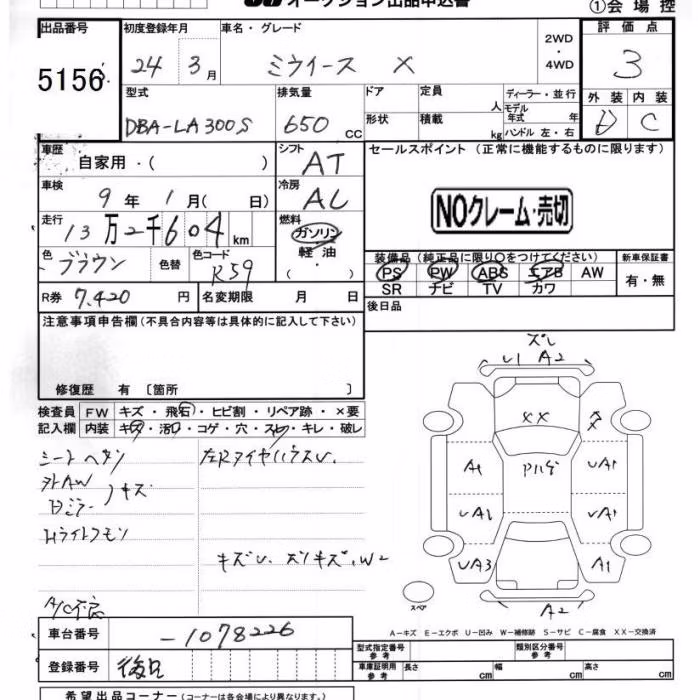 オークション出品申込書
①会場控
出品番号 初度登録年月 車名・グレード 2WD・4WD 評価点
5156 24 3月 ミライース X 3
型式 排気量 ドア 定員 人 ディーラー・並行 外装 内装
DBA-LA300S 650cc 形状 積載 kg モデル年式 年 ハンドル 左・右 D C
車歴 自家用・( ) シフト AT セールスポイント (正常に機能するものに限ります)
車検 9年1月( 日) 冷房 AC NOクレーム・売切
走行 13万2千604km 燃料 ガソリン・軽油・( )
色 ブラウン 色替 色コード R59
装備品(純正品に限り○をつけてください) 新車保証書
PS PW ABS エアB AW 有・無
SR ナビ TV カワ
R券 7,420円 名変期限 月 日 後日品
注意事項申告欄(不具合内容等は具体的に記入して下さい)
修復歴 有 〔箇所 〕
検査員記入欄 FW キズ・飛石・ヒビ割・リペア跡・×要
内装 キズ・汚れ・コゲ・穴・スレ・キレ・破レ
シートヘタリ 左RタイヤハウスU
外AW
Dミラー キズ
Hライトクモリ
キズU スリキズ、W2
A/C不良
ズレ
U1 A2
XX
A1 UA1
UA1 UA1
UA3 A1
A2
スペア
A−キズ E−エクボ U−凹み W−補修跡 S−サビ C−腐食 XX−交換済
車台番号 -1078226
登録番号 後日
型式指定番号 参考 類別区分番号 参考
車庫証明用 参考 長さ cm 幅 cm 高さ cm
希望出品コーナー (コーナーは各会場により異なります。)